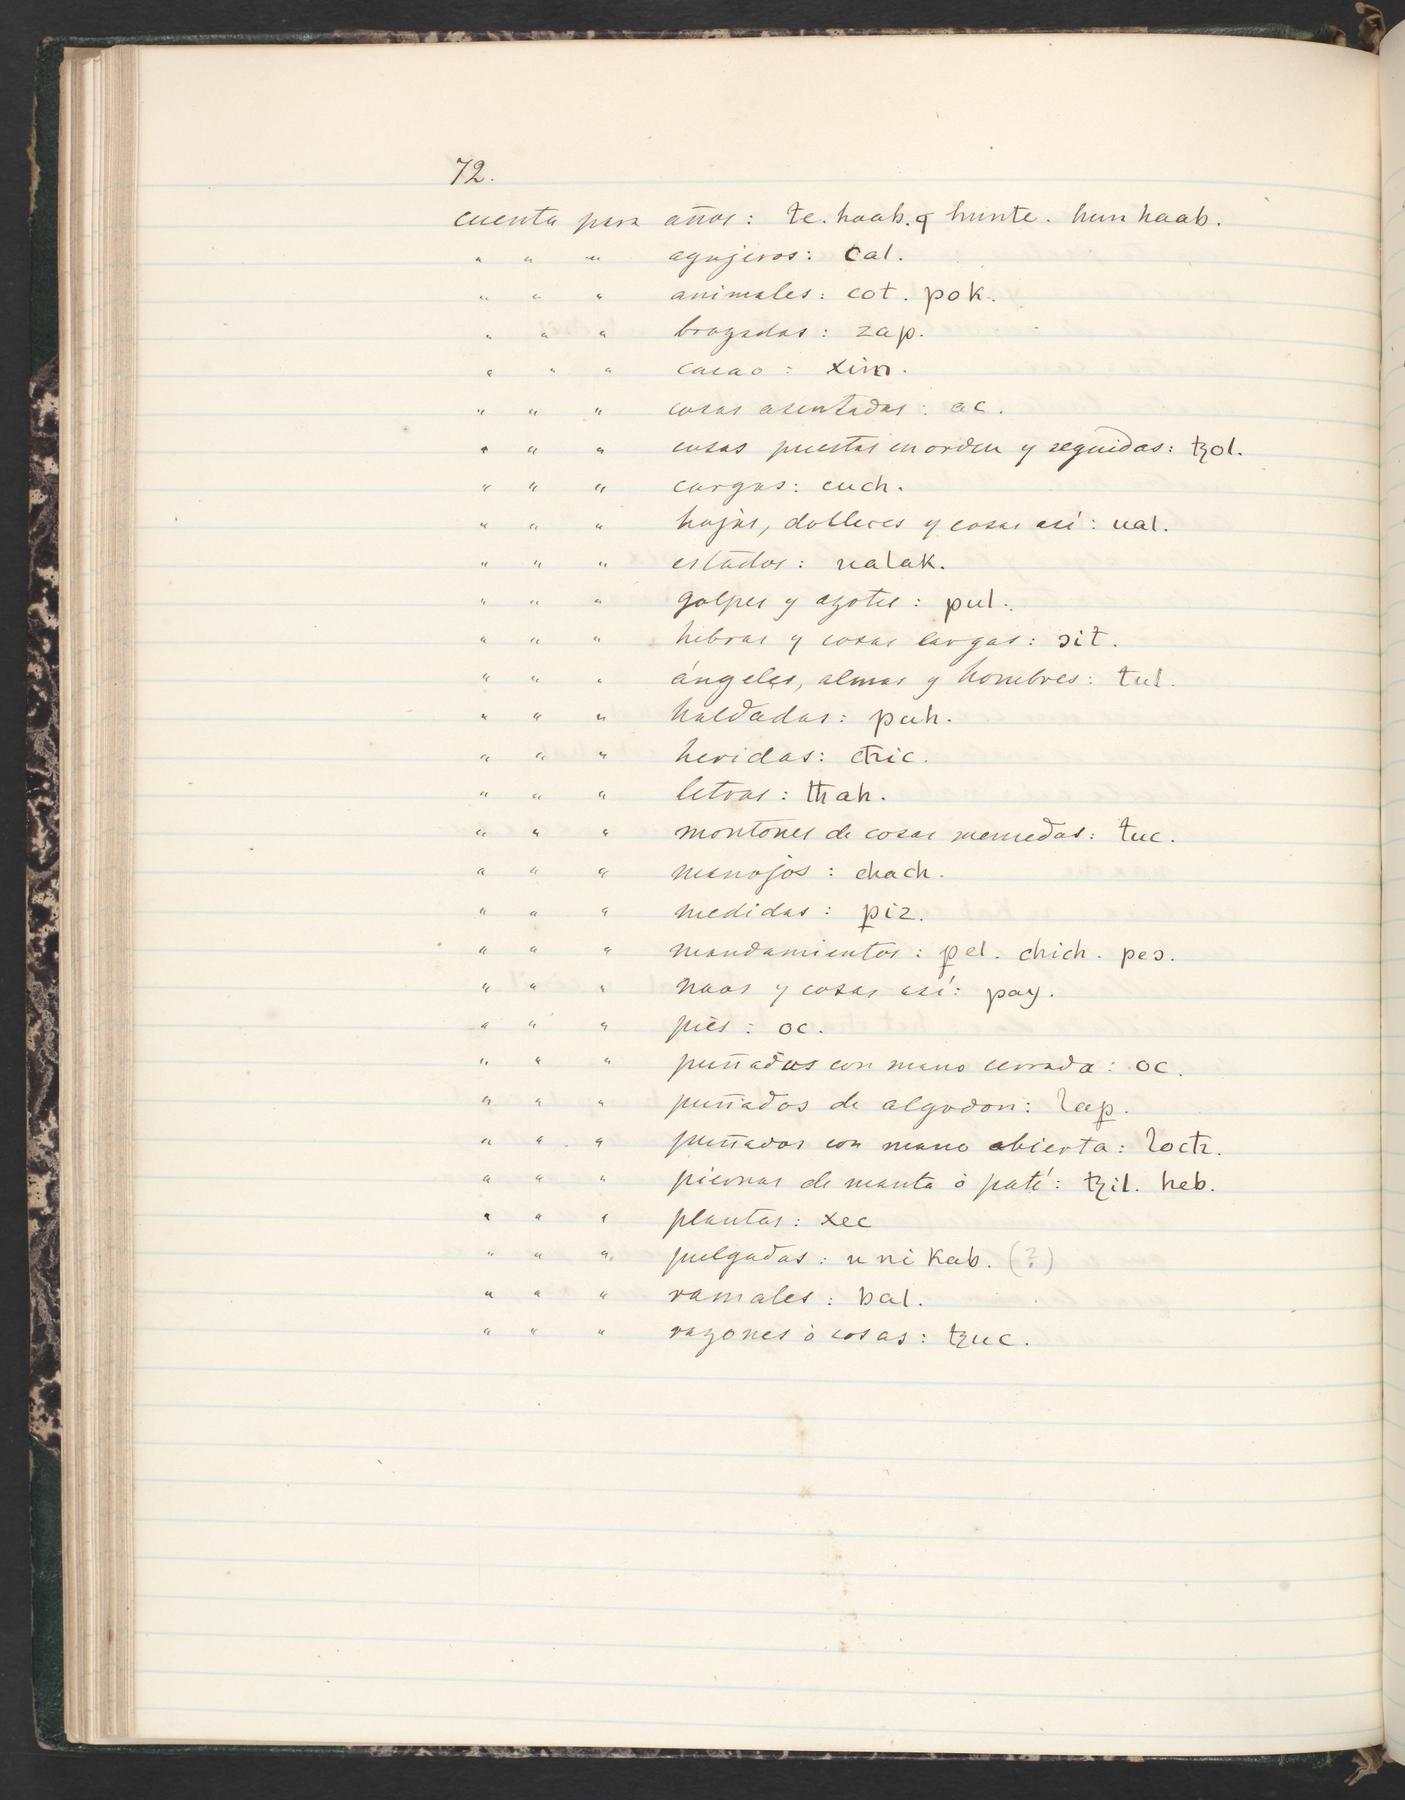 72.
cuenta para años: te. haab. q hunte. hun haab.
" " " agujeros: cal.
" " " animales: cot. pok.
" " " brazadas: zap.
" " " cacao: xim.
" " " cosas asentadas: ac.
" " " cosas puestas en orden y seguidas: tzol.
" " " cargas: cuch.
" " " hojas, dobleces y cosas asi: ual.
" " " estados: ualak.
" " " golpes y azotes: pul.
" " " hebras y cosas largas: ɔit.
" " " ángeles, almas y hombres: tul.
" " " haldadas: puh.
" " " heridas: cħic.
" " " letras: tħah.
" " " montones de cosas menudas: tuc.
" " " manojos: chach.
" " " medidas: ppiz.
" " " mandamientos: ppel. chich. peɔ.
" " " naos y cosas así: pay.
" " " piés: oc.
" " " puñados con mano cerrada: oc.
" " " puñados de algodon: lapp.
" " " puñados con mano abierta: locħ.
" " " piernas de manta ò patí: tzil. heb.
" " " plantas: xec
" " " pulgadas: u ni kab. (?)
" " " ramales: bal.
" " " razones ò cosas: tzuc.